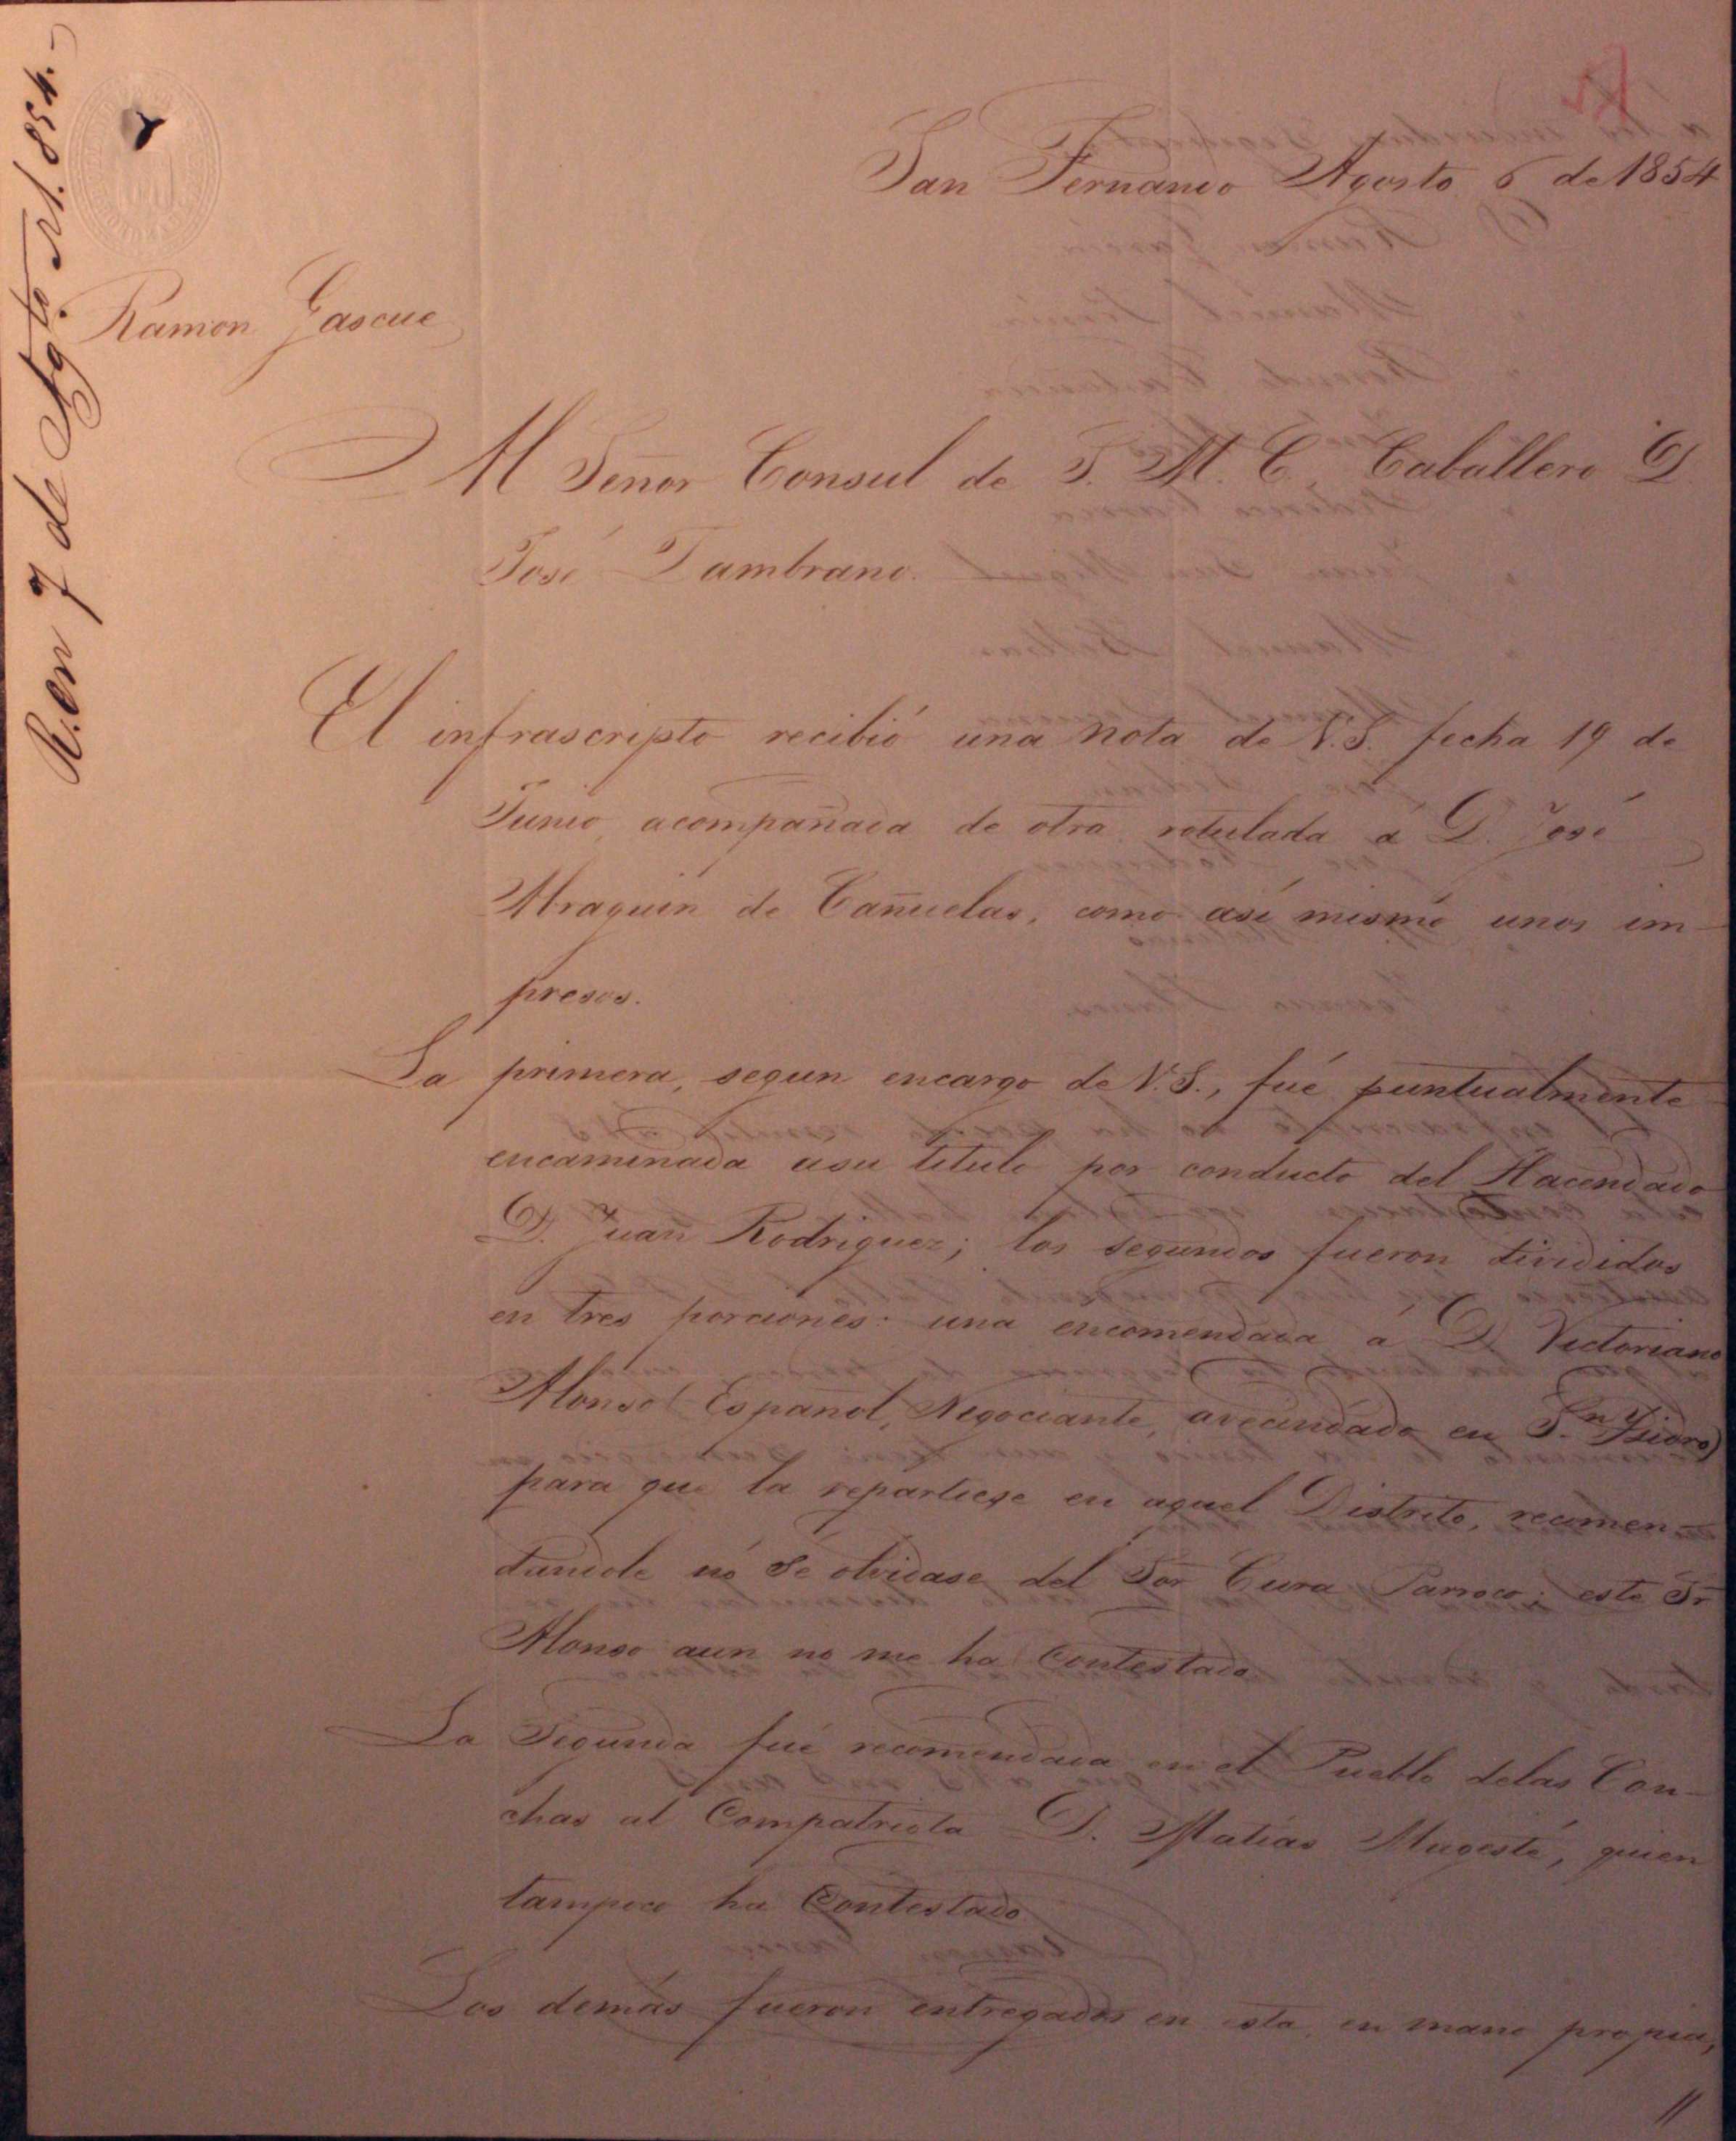 R. en 7 de Ag.to de 1.854.
San Fernando Agosto 6 de 1854
Ramon Gascue
Al Señor Consul de S. M. C. Caballero D.
José Zambrano.
El infrascripto recibió una nota de V.S. fecha 19 de
Junio, acompañada de otra rotulada á D. José
Alraguin de Cañuelas, como asi mismo unos im-
presos.
La primera, segun encargo de V.S., fué puntualmente
encaminada asu titulo por conducto del Hacendado
D. Juan Rodriguez; los segundos fueron divididos
en tres porciones: una encomendada á D. Victoriano
Alonso (Español, Negociante, avecindado en S.n Ysidro)
para que la repartiese en aquel Distrito, recomen-
dandole no se olvidase del Sor Cura Parroco; este Sr
Alonso aun no me ha Contestado
La Segunda fué recomendada en el Pueblo delas Con-
chas al Compatriota D. Matias Magesté, quien
tampoco ha Contestado
Los demás fueron entregados en esta, en mano propia,
//